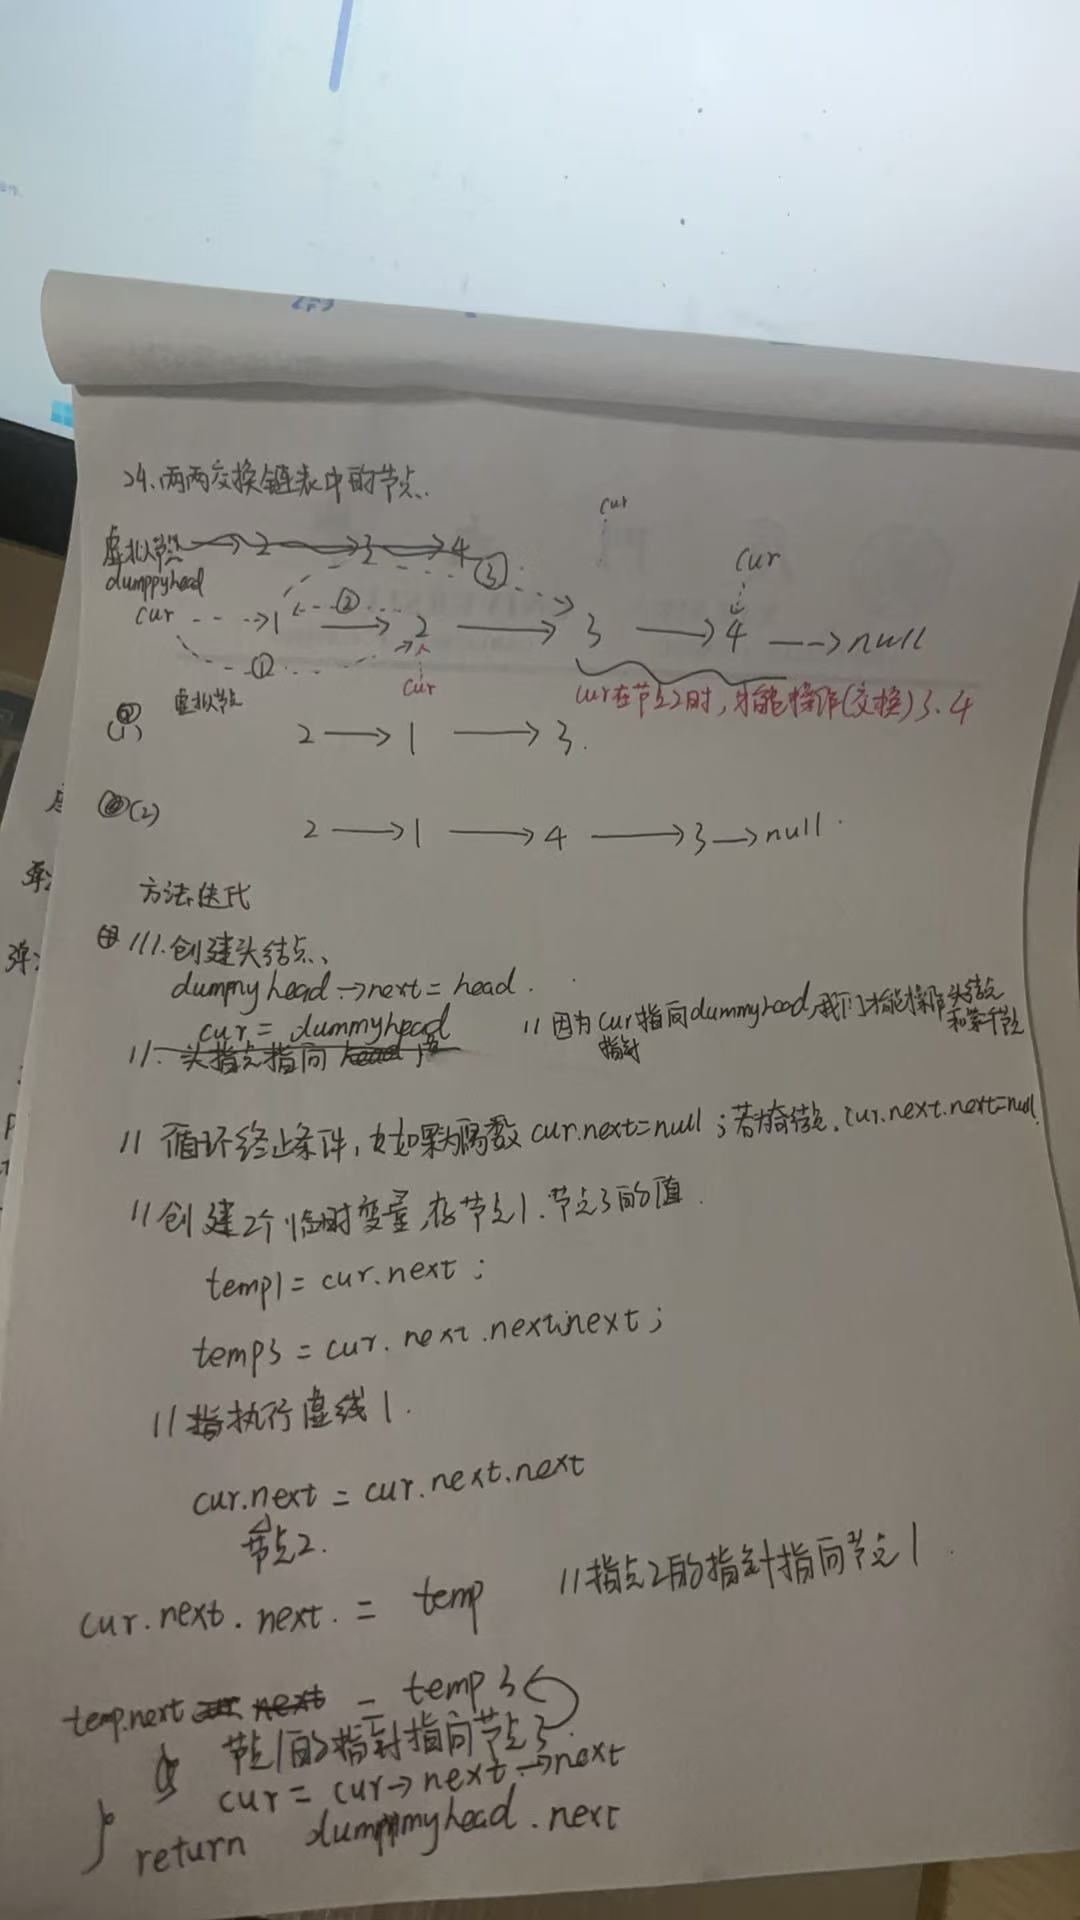 24.两两交换链表中的节点.
虚拟节点 → 2 → 3 → 4
dumppyhead
cur
cur
③
cur
1 → 2 → 3 → 4 → null
②
①
cur
虚拟节点
cur在节点2时,才能操作(交换)3.4
(1) 2 → 1 → 3.
(2) 2 → 1 → 4 → 3 → null.
方法迭代
111.创建头结点、
dummyhead→next = head.
cur = dummyhead
// 因为cur指向dummyhead,我们才能操作头结点
指针
11. 头指点指向 head
// 循环终止条件, 如果为偶数 cur.next=null ; 若为奇结点. cur.next.next=null.
// 创建2个临时变量,存节点1.节点3的值.
temp1 = cur.next ;
temp3 = cur.next.next.next ;
// 指执行虚线1.
cur.next = cur.next.next
节点2.
cur.next.next. = temp // 指点2的指针指向节点1.
temp.next = temp3
节点1的指针指向节点3
cur = cur→next→next
}
return dummmyhead.next